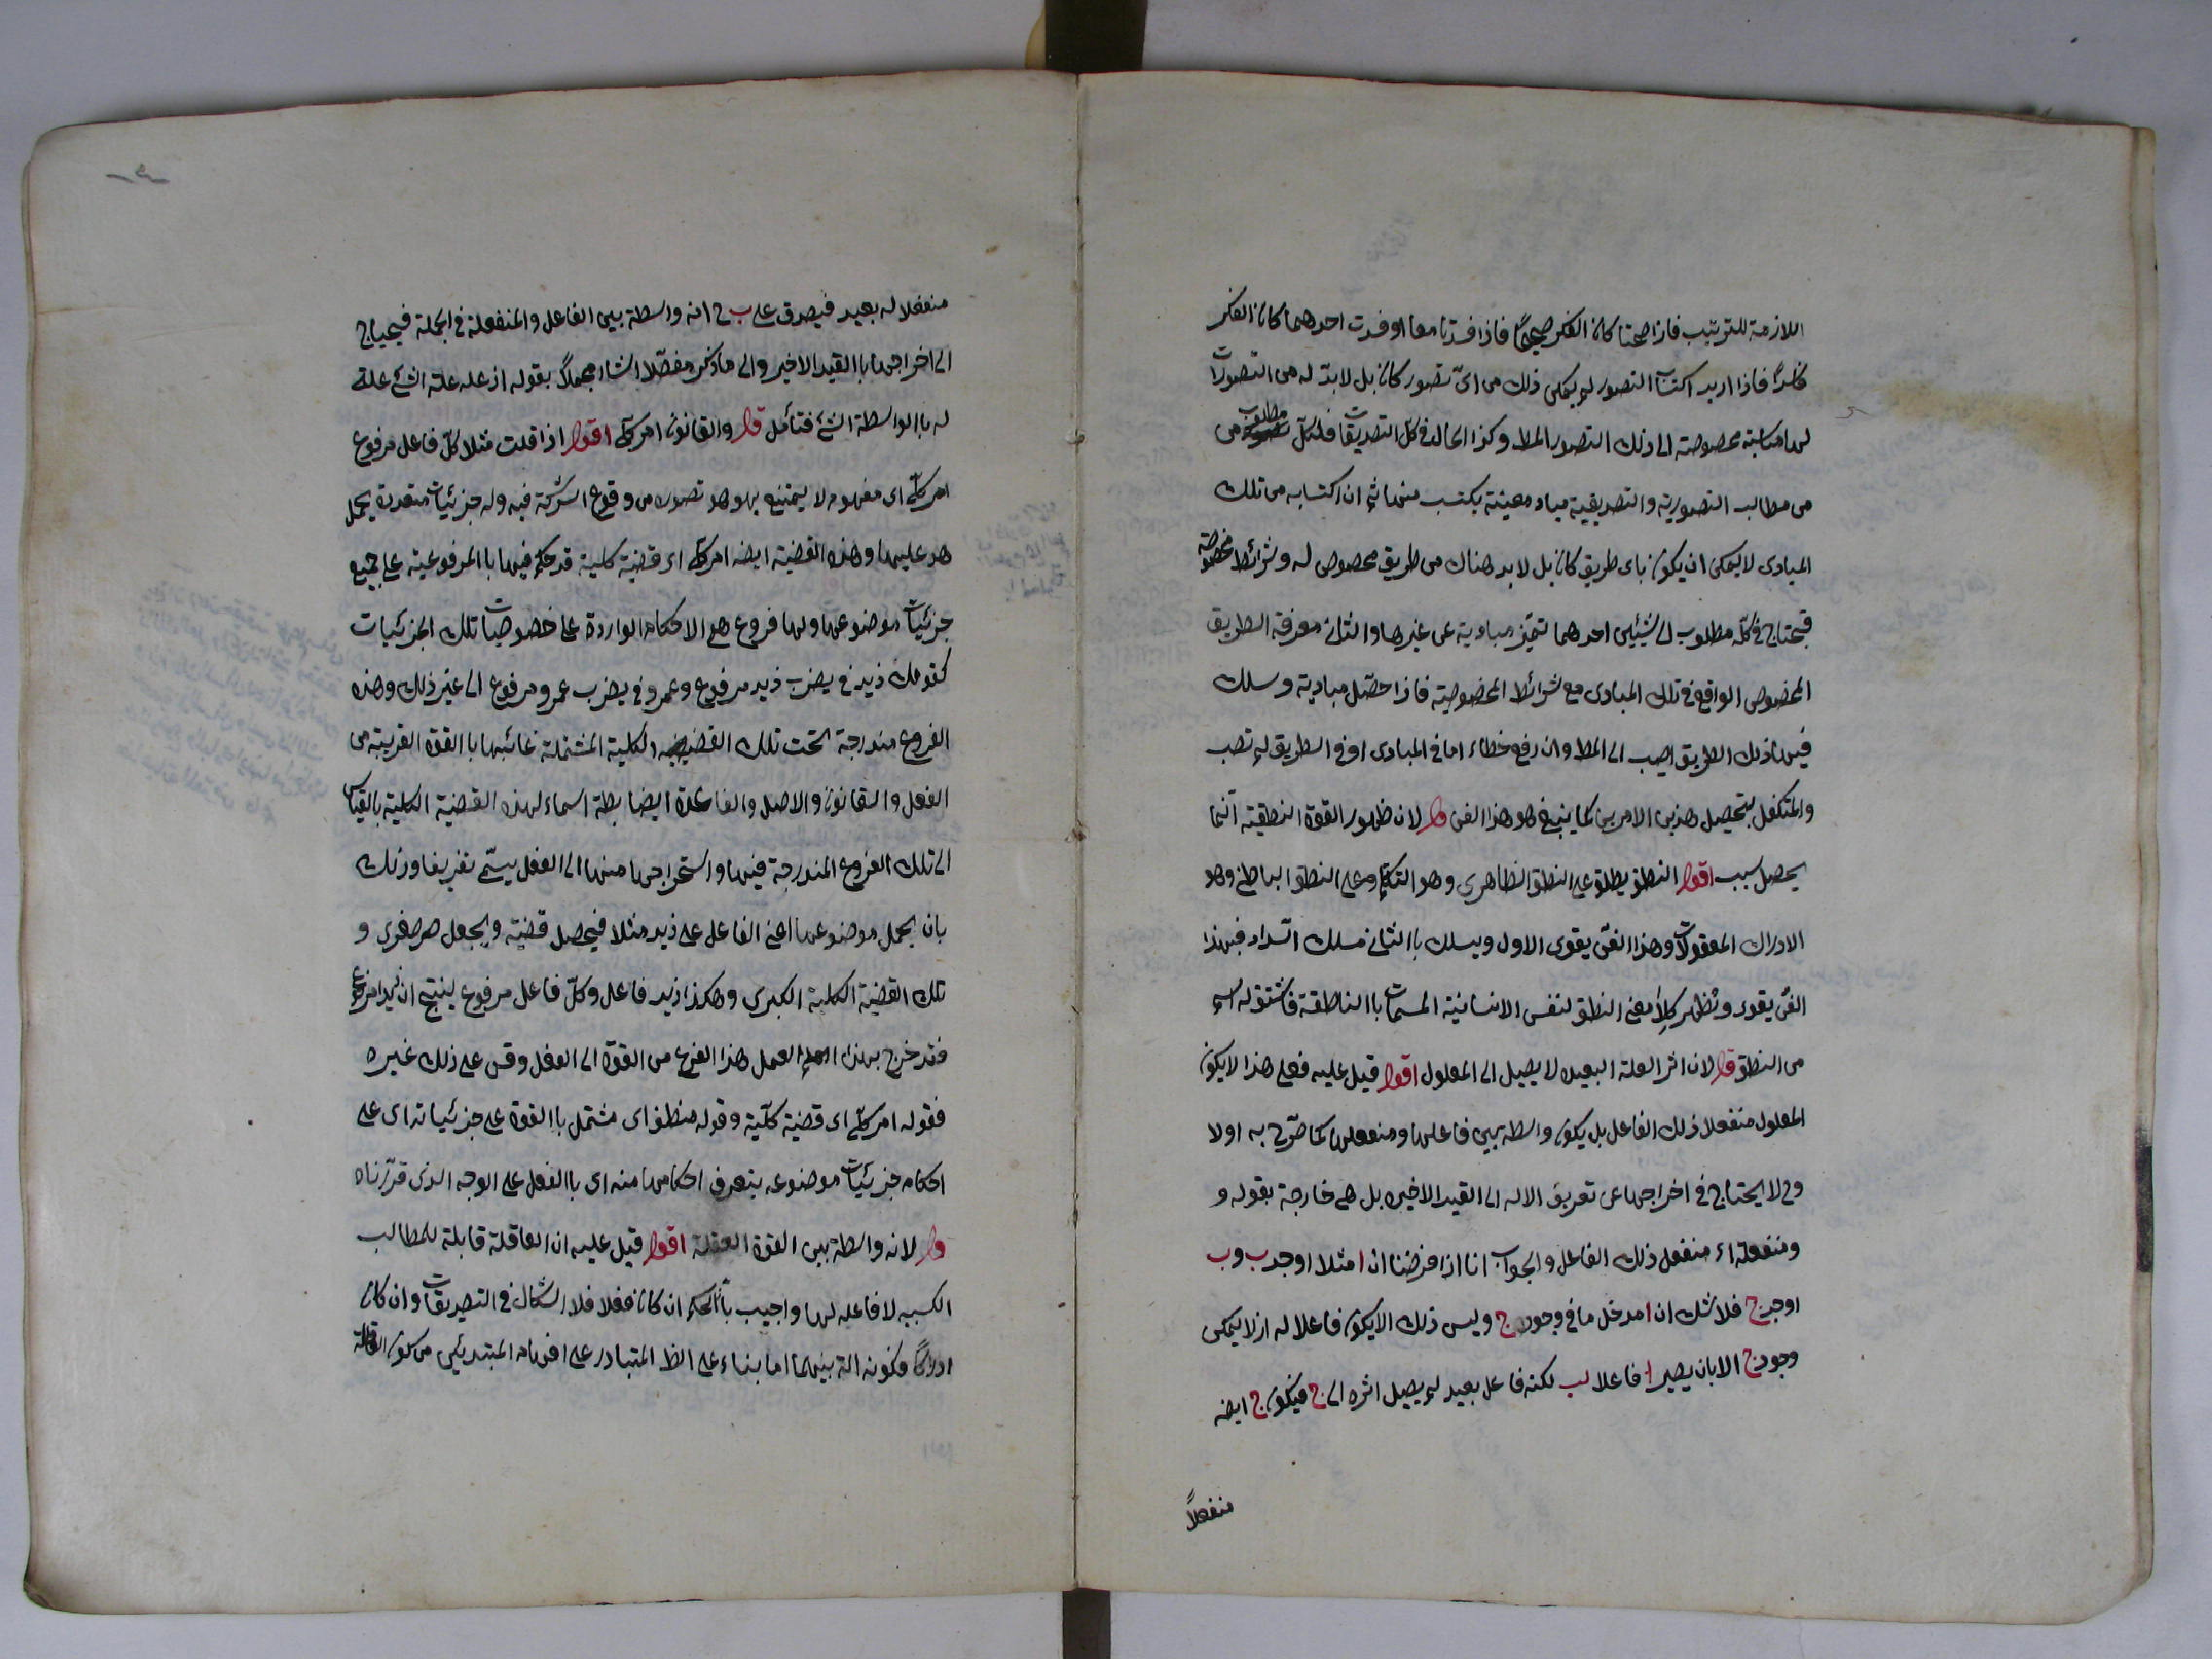 اللازمة للترتيب فاذا صحتا كان الفكر صحيحا فاذا فسدتا معا او فسدت احدهما كان الفكر
فاسدا فاذا اريد اكتساب التصور لم يمكن ذلك من اىّ تصور كان بل لا بدّ له من التصورات
لها مناسبة مخصوصة الى ذلك التصور المط وكذا الحال فى كل التصديقات فلكلّ مطلوب من
من مطالب التصورية والتصديقية مباد معينة يكتسب منها ثم ان اكتسابه من تلك
المبادى لا يمكن ان يكون باى طريق كان بل لا بد هناك من طريق مخصوص له وشرائط مخصوصة
فيحتاج فى كلّ مطلوب الى شيئين احدهما تميّز مباديه عن غيرها والثانى معرفة الطريق
المخصوص الواقع فى تلك المبادى مع شرائط المخصوصية فاذا حصّل مباديه وسلك
فيها ذلك الطريق اصيب الى المط وان رفع خطاء اما فى المبادى او فى الطريق لم تصب
والمتكفل بتحصيل هذين الامرين كما ينبغى هو هذا الفن قال لان ظهور القوة النطقية انّما
يحصل بسبب اقول النطق يطلق على النطق الظاهرى وهو التكلّم وعلى النطق الباطنى وهو
الادراك المعقولات وهذا الفنّ يقوى الاول ويسلك باالثانى مسلك السّداد فبهذا
الفنّ يقوى ويظهر كلا معنى النطق لنفس الانسانية المسمات باالناطقة فاشتق له اسم
من النطق قال لان اثر العلة البعيده لا يصل الى المعلول اقول قيل عليه فعلى هذا لا يكون
المعلول منفعلا ذلك الفاعل بل يكون واسطة بين فاعلها ومنفعلها كما صرّح به اولا
وح لا يحتاج فى اخراجها عن تعريف الاله الى القيد الاخيره بل هى خارجة بقوله و
ومنفعله اى منفعل ذلك الفاعل والجواب انا اذا فرضنا ان ا مثلا اوجد ب وب
اوجد ج فلا شك ان ا مدخل ما فى وجود ج وليس ذلك الا يكون فاعلا له اذ لا يمكن
وجود ج الا بان يصير ا فاعلا لب لكنه فاعل بعيد لم يصل اثره الى ج فيكون ج ايضه
منفعلاً
منفعلا له بعيد فيصدق على ب ح انه واسطة بين الفاعل والمنفعلة فى الجملة فيحتاج
الى اخراجها باالقيد الاخير والى ما ذكر مفصّلا اشار مجملاً بقوله اذ علة علة الشئ علة
له باالواسطة الشئ فتأمل قال والقانون امر كلّى اقول اذا قلت مثلا كلّ فاعل مرفوع
امر كلّى اى مفهوم لا يمتنع تصوره من وقوع الشركة فيه وله جزئيات متعددة يحمل
هو عليها وهذه القضية ايضه امر كلّى اى قضية كلية قد حكم فيها باالمرفوعية على جميع
جزئيات موضوعها ولها فروع هى الاحكام الواردة على خصوصيات تلك الجزئيات
كقولك زيد فى يضرب زيد مرفوع وعمرو فى يضرب عمرو مرفوع الى غير ذلك وهذه
الفروع مندرجة تحت تلك القضية الكلية المشتملة عليها باالقوة القريبة من
الفعل والقانون والاصل والقاعدة الضابطة اسماء لهذه القضية الكلية بالقياس
الى تلك الفروع المندرجة فيها واستخراجها منها الى الفعل يسمّى تفريعا وذلك
بان يحمل موضوعها اعنى الفاعل على زيد مثلا فيحصل قضية ويجعل صغرى و
تلك القضية الكلية الكبرى وهكذا زيد فاعل وكلّ فاعل مرفوع ينتج ان زيدا مرفوع
فقد خرج بهذا العمل هذا الفرع من القوّة الى الفعل وقس على ذلك غيره
فقوله امر كلّى اى قضية كلّية وقوله منطبق اى مشتمل باالقوة على جزئياته اى على
احكام جزئيات موضوعه يتعرف احكامها منه اى باالفعل على الوجه الذى قرّرناه
قال لانه واسطة بين القوة العقلة اقول قيل عليه ان العاقلة قابلة للمطالب
الكسبيه لا فاعله لها واجيب بانّ الحكم ان كان فعلا فلا اشكال فى التصديقات وان كان
ادراكا فكونه الة بينهما اما بناء على الظ المتبادر على افهام المبتدئين من كون القائلة